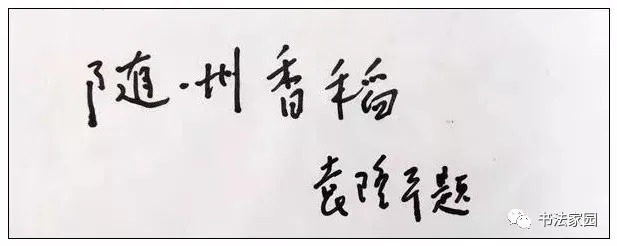 随州香稻
袁隆平题
书法家园